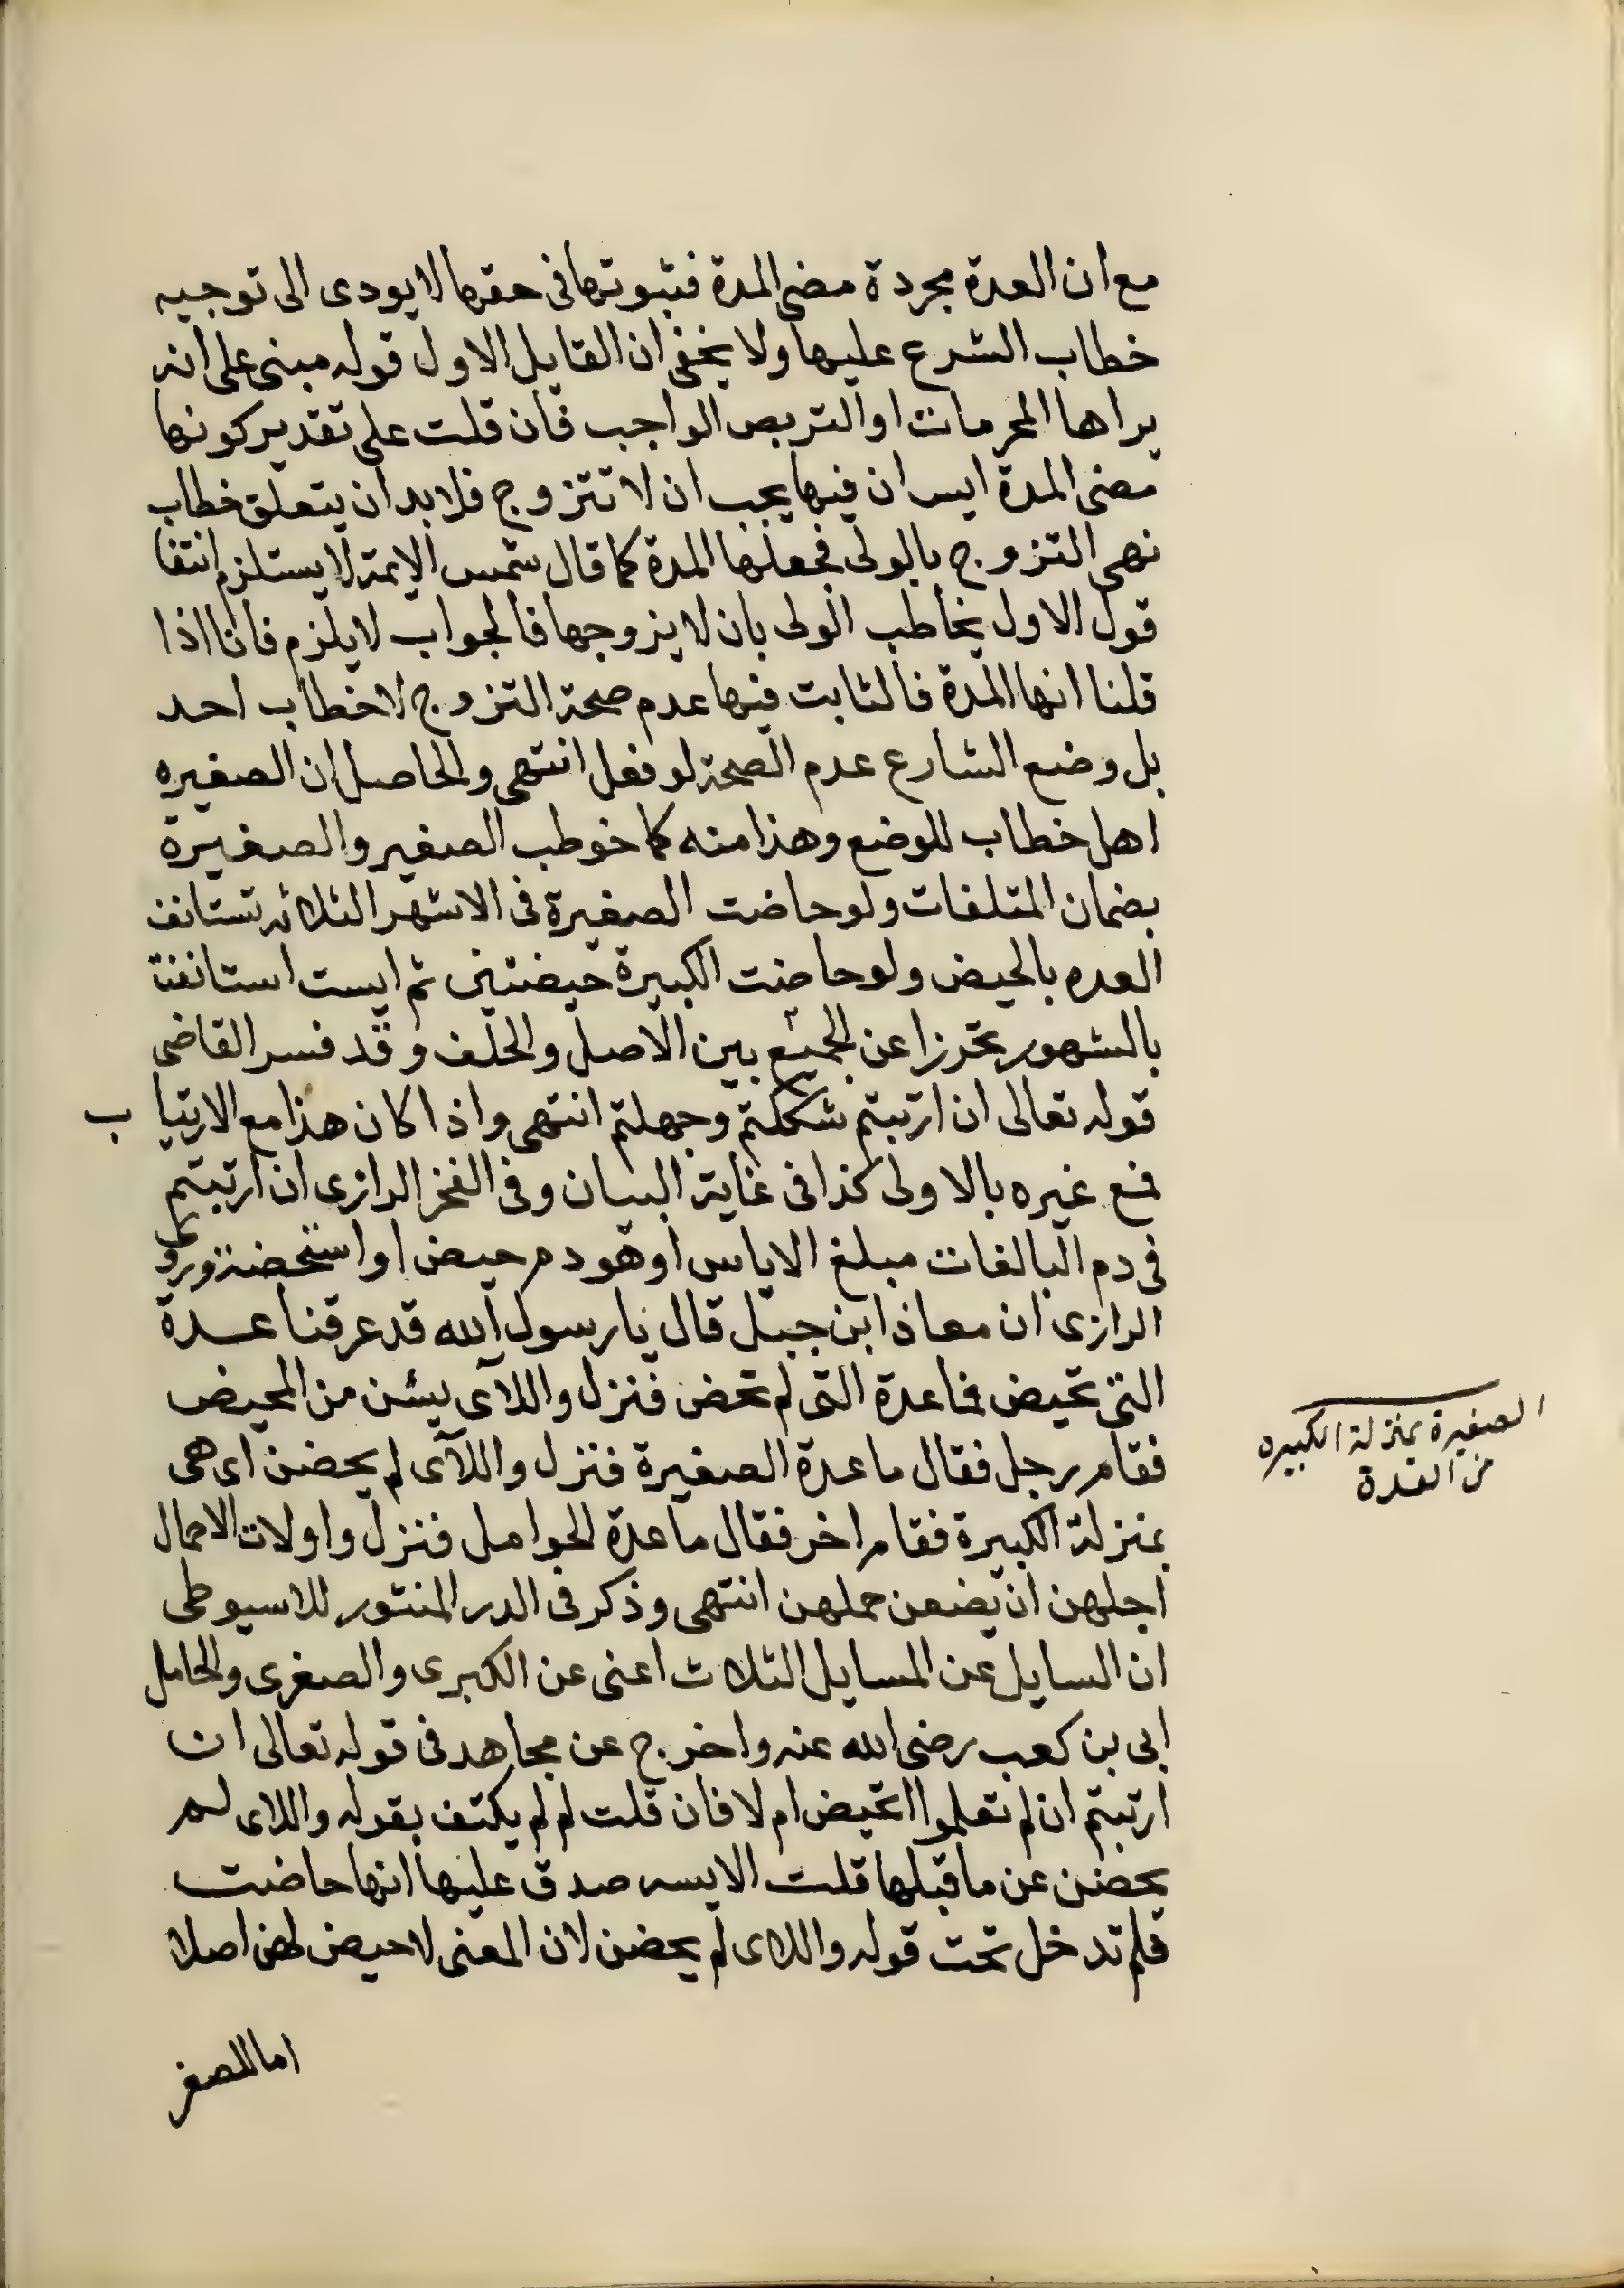 مع ان العدة مجردة مضى المدة فثبوتها فى حقها لا يودى الى توجيه
خطاب الشرع عليها ولا يخفى ان القايل الاول قوله مبنى على انه
يراها المحرمات او التربص الواجب فان قلت على تقدير كونها
مضى المدة ايس ان فيها يجب ان لا تتزوج فلا بد ان يتعلق خطاب
نهى التزوج بالولى فجعلها المدة كما قال شمس الايمة لا يستلزم انتفا
قول الاول يخاطب الولى بان لا يزوجها فالجواب لا يلزم فاننا اذا
قلنا انها المدة فالثابت فيها عدم صحة التزوج لا خطاب احد
بل وضع الشارع عدم الصحة لو فعل انتهى والحاصل ان الصغيره
اهل خطاب للوضع وهذا منه كما خوطب الصغير والصغيرة
بضمان المتلفات ولو حاضت الصغيرة فى الاشهر الثلاثه تستانف
العده بالحيض ولو حاضت الكبيرة حيضتين ثم ايست استانفت
بالشهور تحرزا عن الجمع بين الاصل والخلف وقد فسر القاضى
قوله تعالى ان ارتبتم شككتم وجهلتم انتهى واذا كان هذا مع الارتياب
فمع غيره بالاولى كذا فى غاية البيان وفى الفخر الرازى ان ارتبتم
فى دم البالغات مبلغ الاياس اوهو دم حيض او استحضة وروى
الرازى ان معاذ ابن جبل قال يا رسول الله قد عرفنا عدة
التى تحيض فما عدة التى لم تحض فنزل واللآى يئسن من المحيض
فقام رجل فقال ما عدة الصغيرة فنزل واللآى لم يحضن اى هى
بمنزلة الكبيرة فقام اخر فقال ما عدة الحوامل فنزل واولات الاحمال
اجلهن ان يضعن حملهن انتهى وذكر فى الدر المنثور للاسيوطى
ان السايل عن المسايل الثلاث اعنى عن الكبرى والصغرى والحامل
ابى بن كعب رضى الله عنه واخرج عن مجاهد فى قوله تعالى ان
ارتبتم ان لم تعلموا اتحيض ام لا فان قلت لم لم يكتف بقوله واللاى لم
يحضن عن ما قبلها قلت الايسه صدق عليها انها حاضت
فلم تدخل تحت قوله واللاى لم يحضن لان المعنى لا حيض لهن اصلا
اما للصغر
الصغيرة بمنزلة الكبيره
من العدة